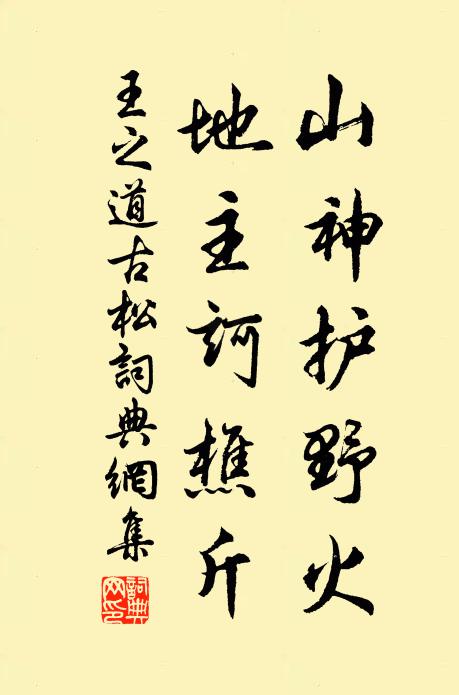 山神护野火
地主訶樵斤
王之道古松詞典網集
詞典網印